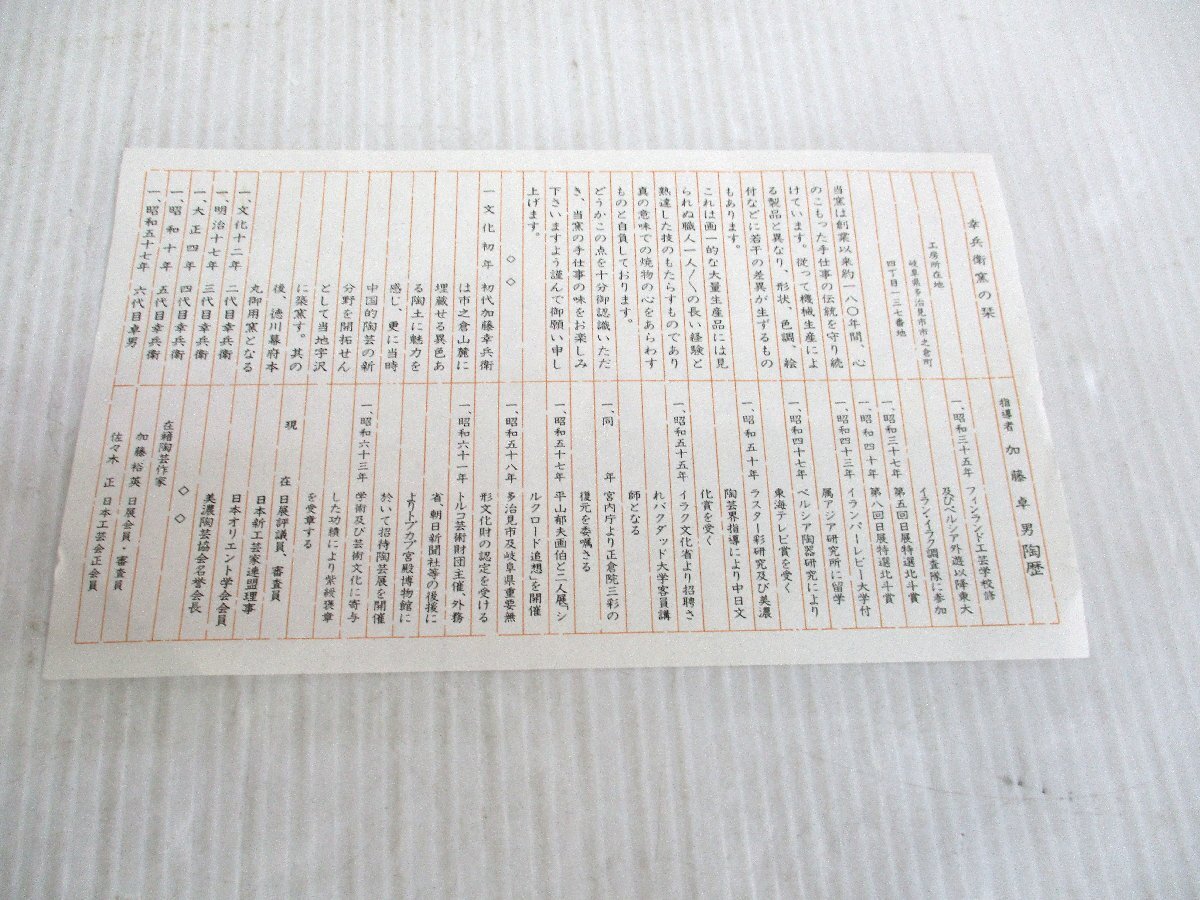 幸兵衛窯の栞
工房所在地
岐阜県多治見市市之倉町
四丁目一三七番地
当窯は創業以来約一八〇年間、心
のこもった手仕事の伝統を守り続
けています。従って機械生産によ
る製品と異なり、形状、色調、絵
付などに若干の差異が生ずるもの
もあります。
これは画一的な大量生産品には見
られぬ職人一人〱の長い経験と
熟達した技のもたらすものであり
真の意味での焼物の心をあらわす
ものと自負しております。
どうかこの点を十分御認識いただ
き、当窯の手仕事の味をお楽しみ
下さいますよう謹んで御願い申し
上げます。
◇◇
一文化初年 初代加藤幸兵衛
は市之倉山麓に
埋蔵せる異色あ
る陶土に魅力を
感じ、更に当時
中国的陶芸の新
分野を開拓せん
として当地字沢
に築窯す。其の
後、徳川幕府本
丸御用窯となる
一、文化十二年 二代目幸兵衛
一、明治十七年 三代目幸兵衛
一、大正四年 四代目幸兵衛
一、昭和十年 五代目幸兵衛
一、昭和五十七年 六代目卓男
指導者 加藤卓男陶歴
一、昭和三十五年 フィンランド工芸学校修
及びペルシア外遊以降東大
イラン・イラク調査隊に参加
一、昭和三十七年 第五回日展特選北斗賞
一、昭和四十年 第八回日展特選北斗賞
一、昭和四十三年 イランパーレビー大学付
属アジア研究所に留学
一、昭和四十七年 ペルシア陶器研究により
東海テレビ賞を受く
一、昭和五十年 ラスター彩研究及び美濃
陶芸界指導により中日文
化賞を受く
一、昭和五十五年 イラク文化省より招聘さ
れバクダッド大学客員講
師となる
一、同年 宮内庁より正倉院三彩の
復元を委嘱さる
一、昭和五十七年 平山郁夫画伯と二人展「シ
ルクロード追想」を開催
一、昭和五十八年 多治見市及岐阜県重要無
形文化財の認定を受ける
一、昭和六十一年 トルコ芸術財団主催、外務
省、朝日新聞社等の後援に
よりトプカプ宮殿博物館に
於いて招待陶芸展を開催
一、昭和六十三年 学術及び芸術文化に寄与
した功績により紫綬褒章
を受章する
現在 日展評議員、審査員
日本新工芸家連盟理事
日本オリエント学会会員
美濃陶芸協会名誉会長
◇◇
在籍陶芸作家
加藤裕英 日展会員・審査員
佐々木正 日本工芸会正会員